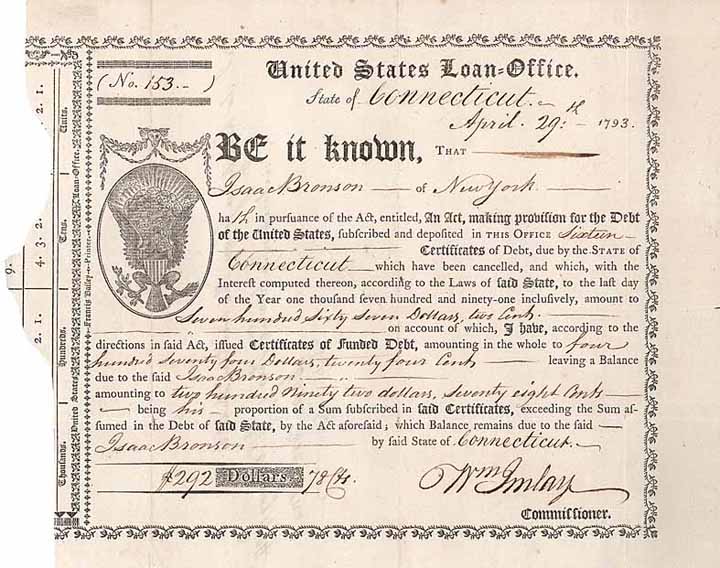 (No. 153.-)
United States Loan-Office.
State of Connecticut.
April. 29:th 1793.
BE it known, THAT
Isaac Bronson of New York
hath in pursuance of the Act, entitled, An Act, making provision for the Debt
of the United States, subscribed and deposited in THIS OFFICE Sixteen
Certificates of Debt, due by the STATE of
Connecticut which have been cancelled, and which, with the
Interest computed thereon, according to the Laws of said State, to the last day
of the Year one thousand seven hundred and ninety-one inclusively, amount to
Seven hundred Sixty Seven Dollars, two Cents
on account of which, I have, according to the
directions in said Act, issued Certificates of Funded Debt, amounting in the whole to four
hundred Seventy four Dollars, twenty four Cents leaving a Balance
due to the said Isaac Bronson
amounting to two hundred Ninety two dollars, Seventy eight Cents
being his proportion of a Sum subscribed in said Certificates, exceeding the Sum as-
sumed in the Debt of said State, by the Act aforesaid; which Balance remains due to the said
Isaac Bronson by said State of Connecticut.
292 Dollars. 78 Cts.
Wm Imlay
Commissioner.
Francis Bailey Printer
United States Loan-Office.
Thousands. Hundreds. Tens. Units.
2. 1.
4. 3. 2.
9.
2. 1.